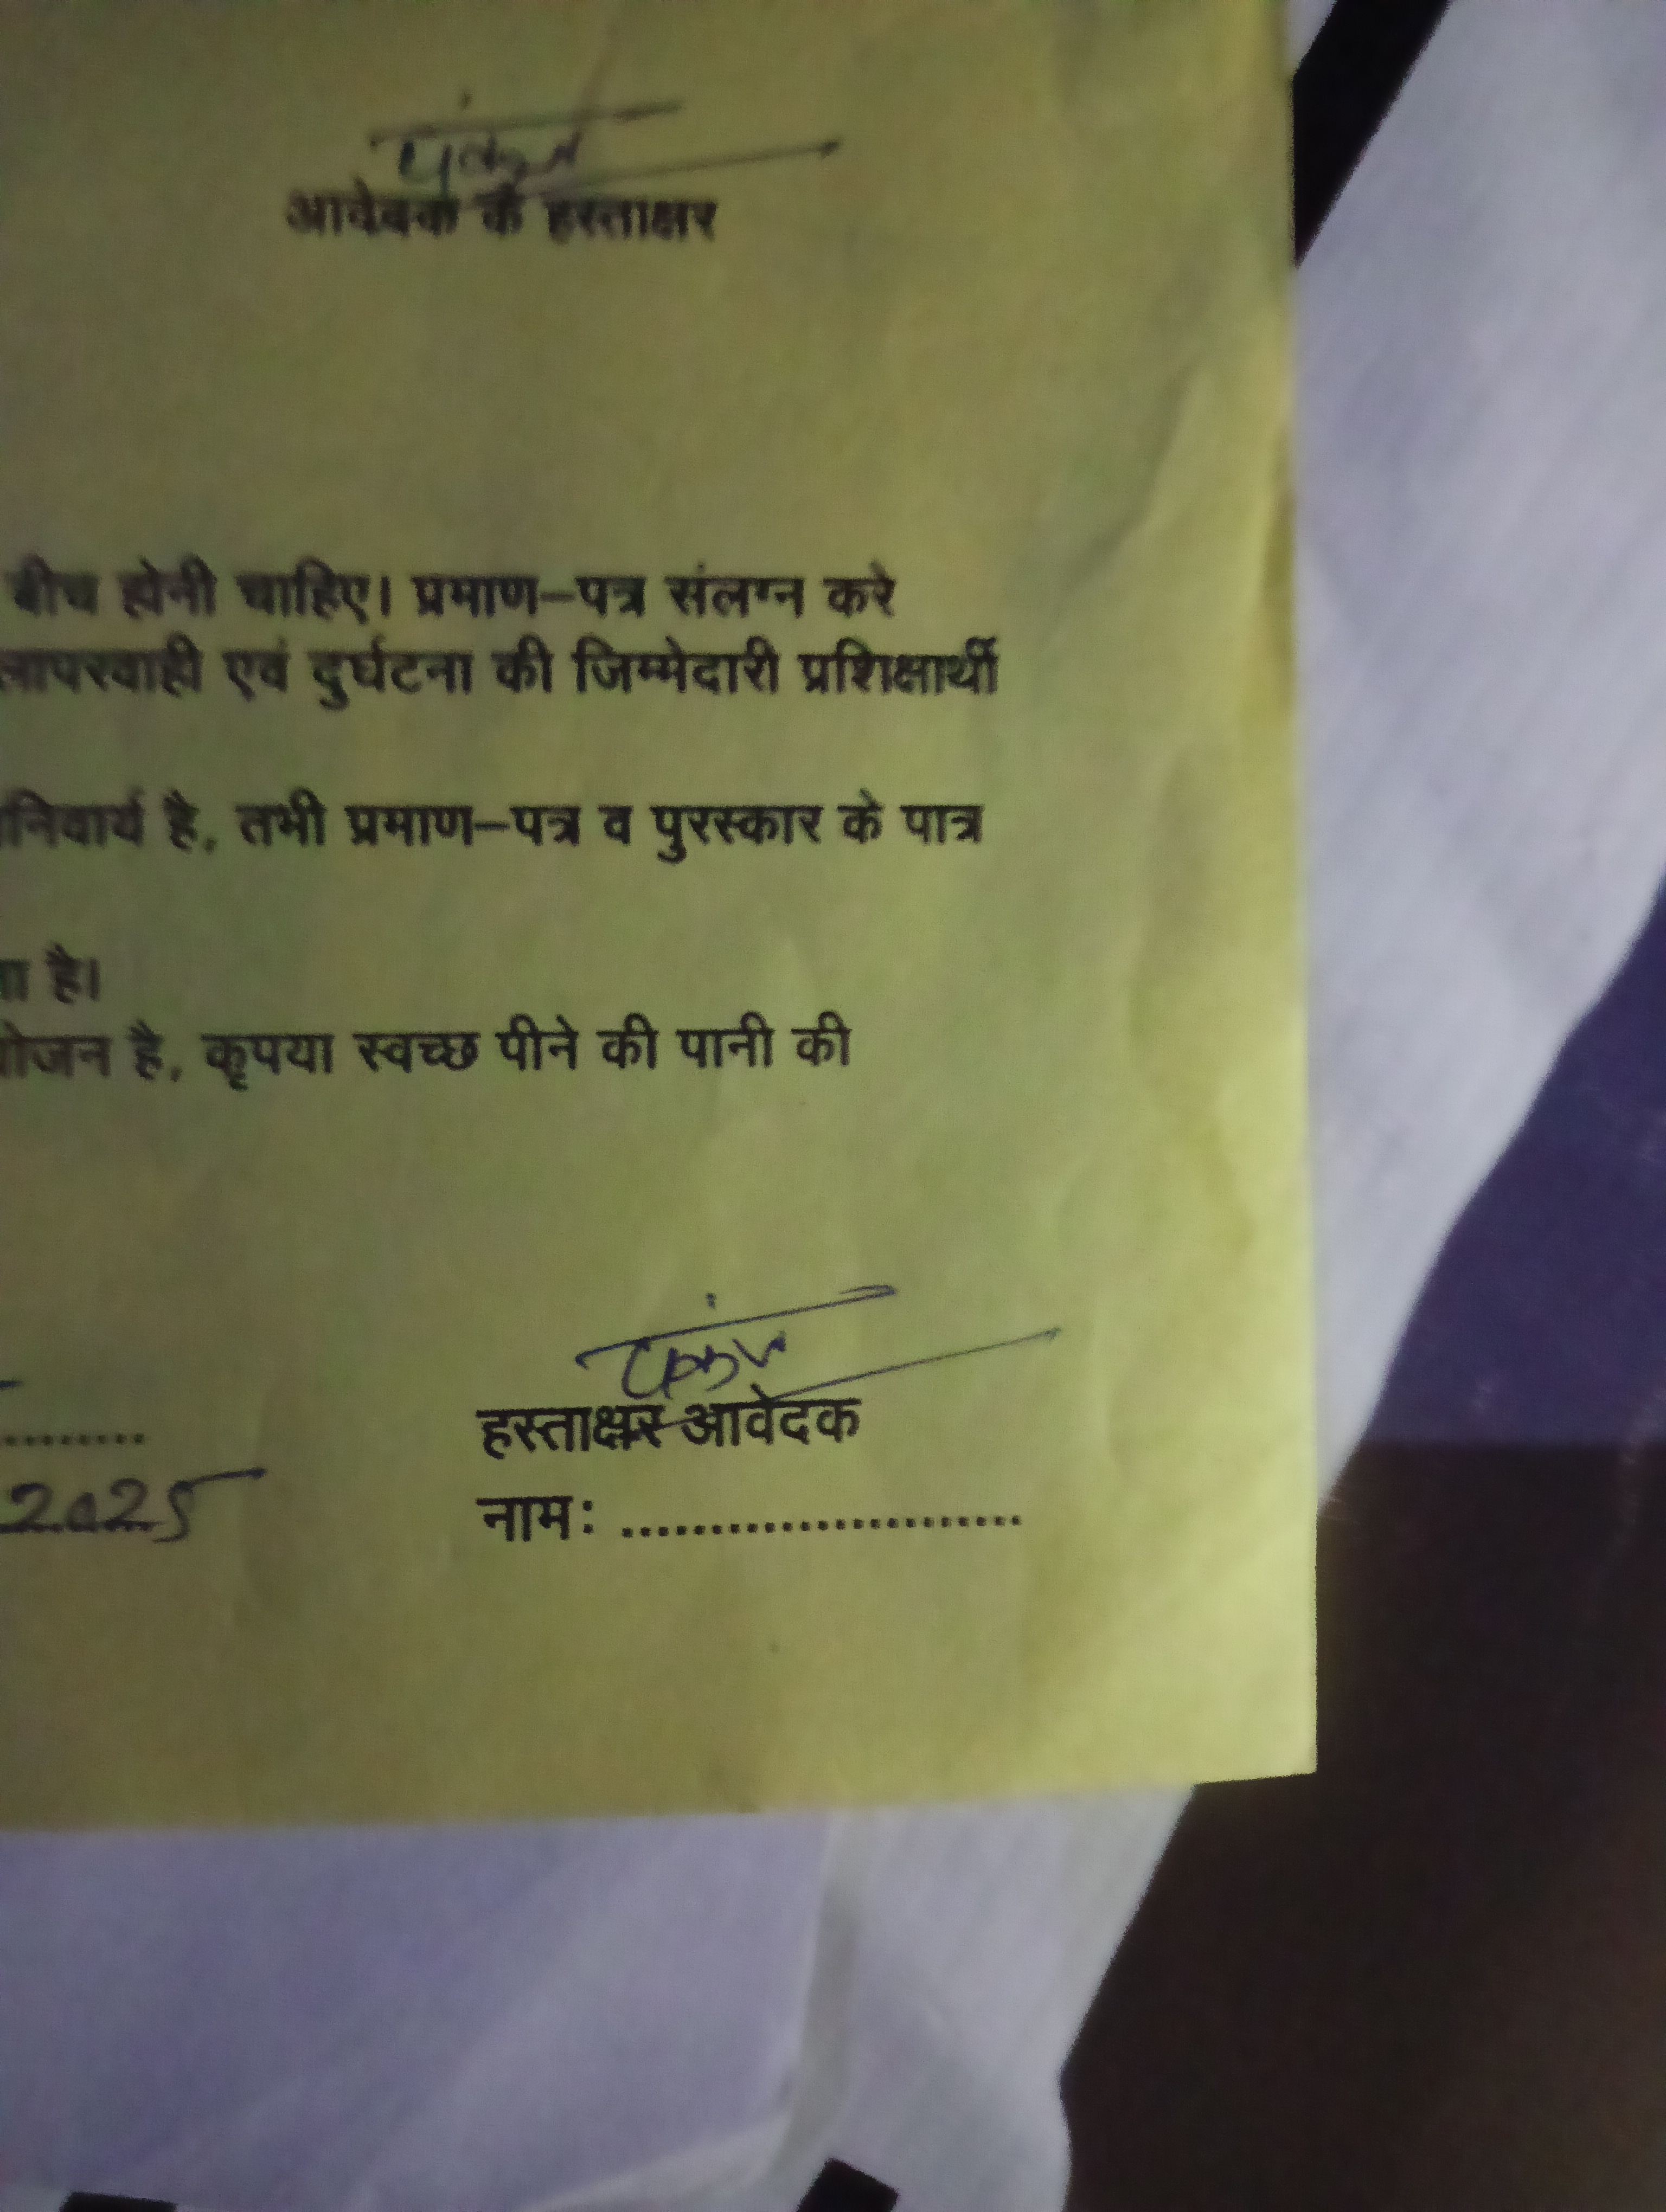 पंकज
आवेदक के हस्ताक्षर
बीच होनी चाहिए। प्रमाण–पत्र संलग्न करे
लापरवाही एवं दुर्घटना की जिम्मेदारी प्रशिक्षार्थी
निवार्य है, तभी प्रमाण–पत्र व पुरस्कार के पात्र
है।
योजन है, कृपया स्वच्छ पीने की पानी की
पंकज
हस्ताक्षर आवेदक
2025
नामः ........................